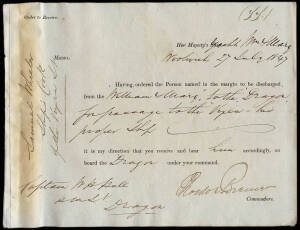 Order to Receive.
Her Majesty's Yacht Wm & Mary
Woolwich 27 July 1847
MEMO.
Samuel Wheeler
Ship's Cook
of the Vixen
Having ordered the Person named in the margin to be discharged,
from the "William & Mary," to the Dragon
for passage to the Vixen his
proper Ship
it is my direction that you receive and bear him accordingly, on
board the Dragon under your command.
Captain W. H. Hall
H M S
Dragon
Commodore.